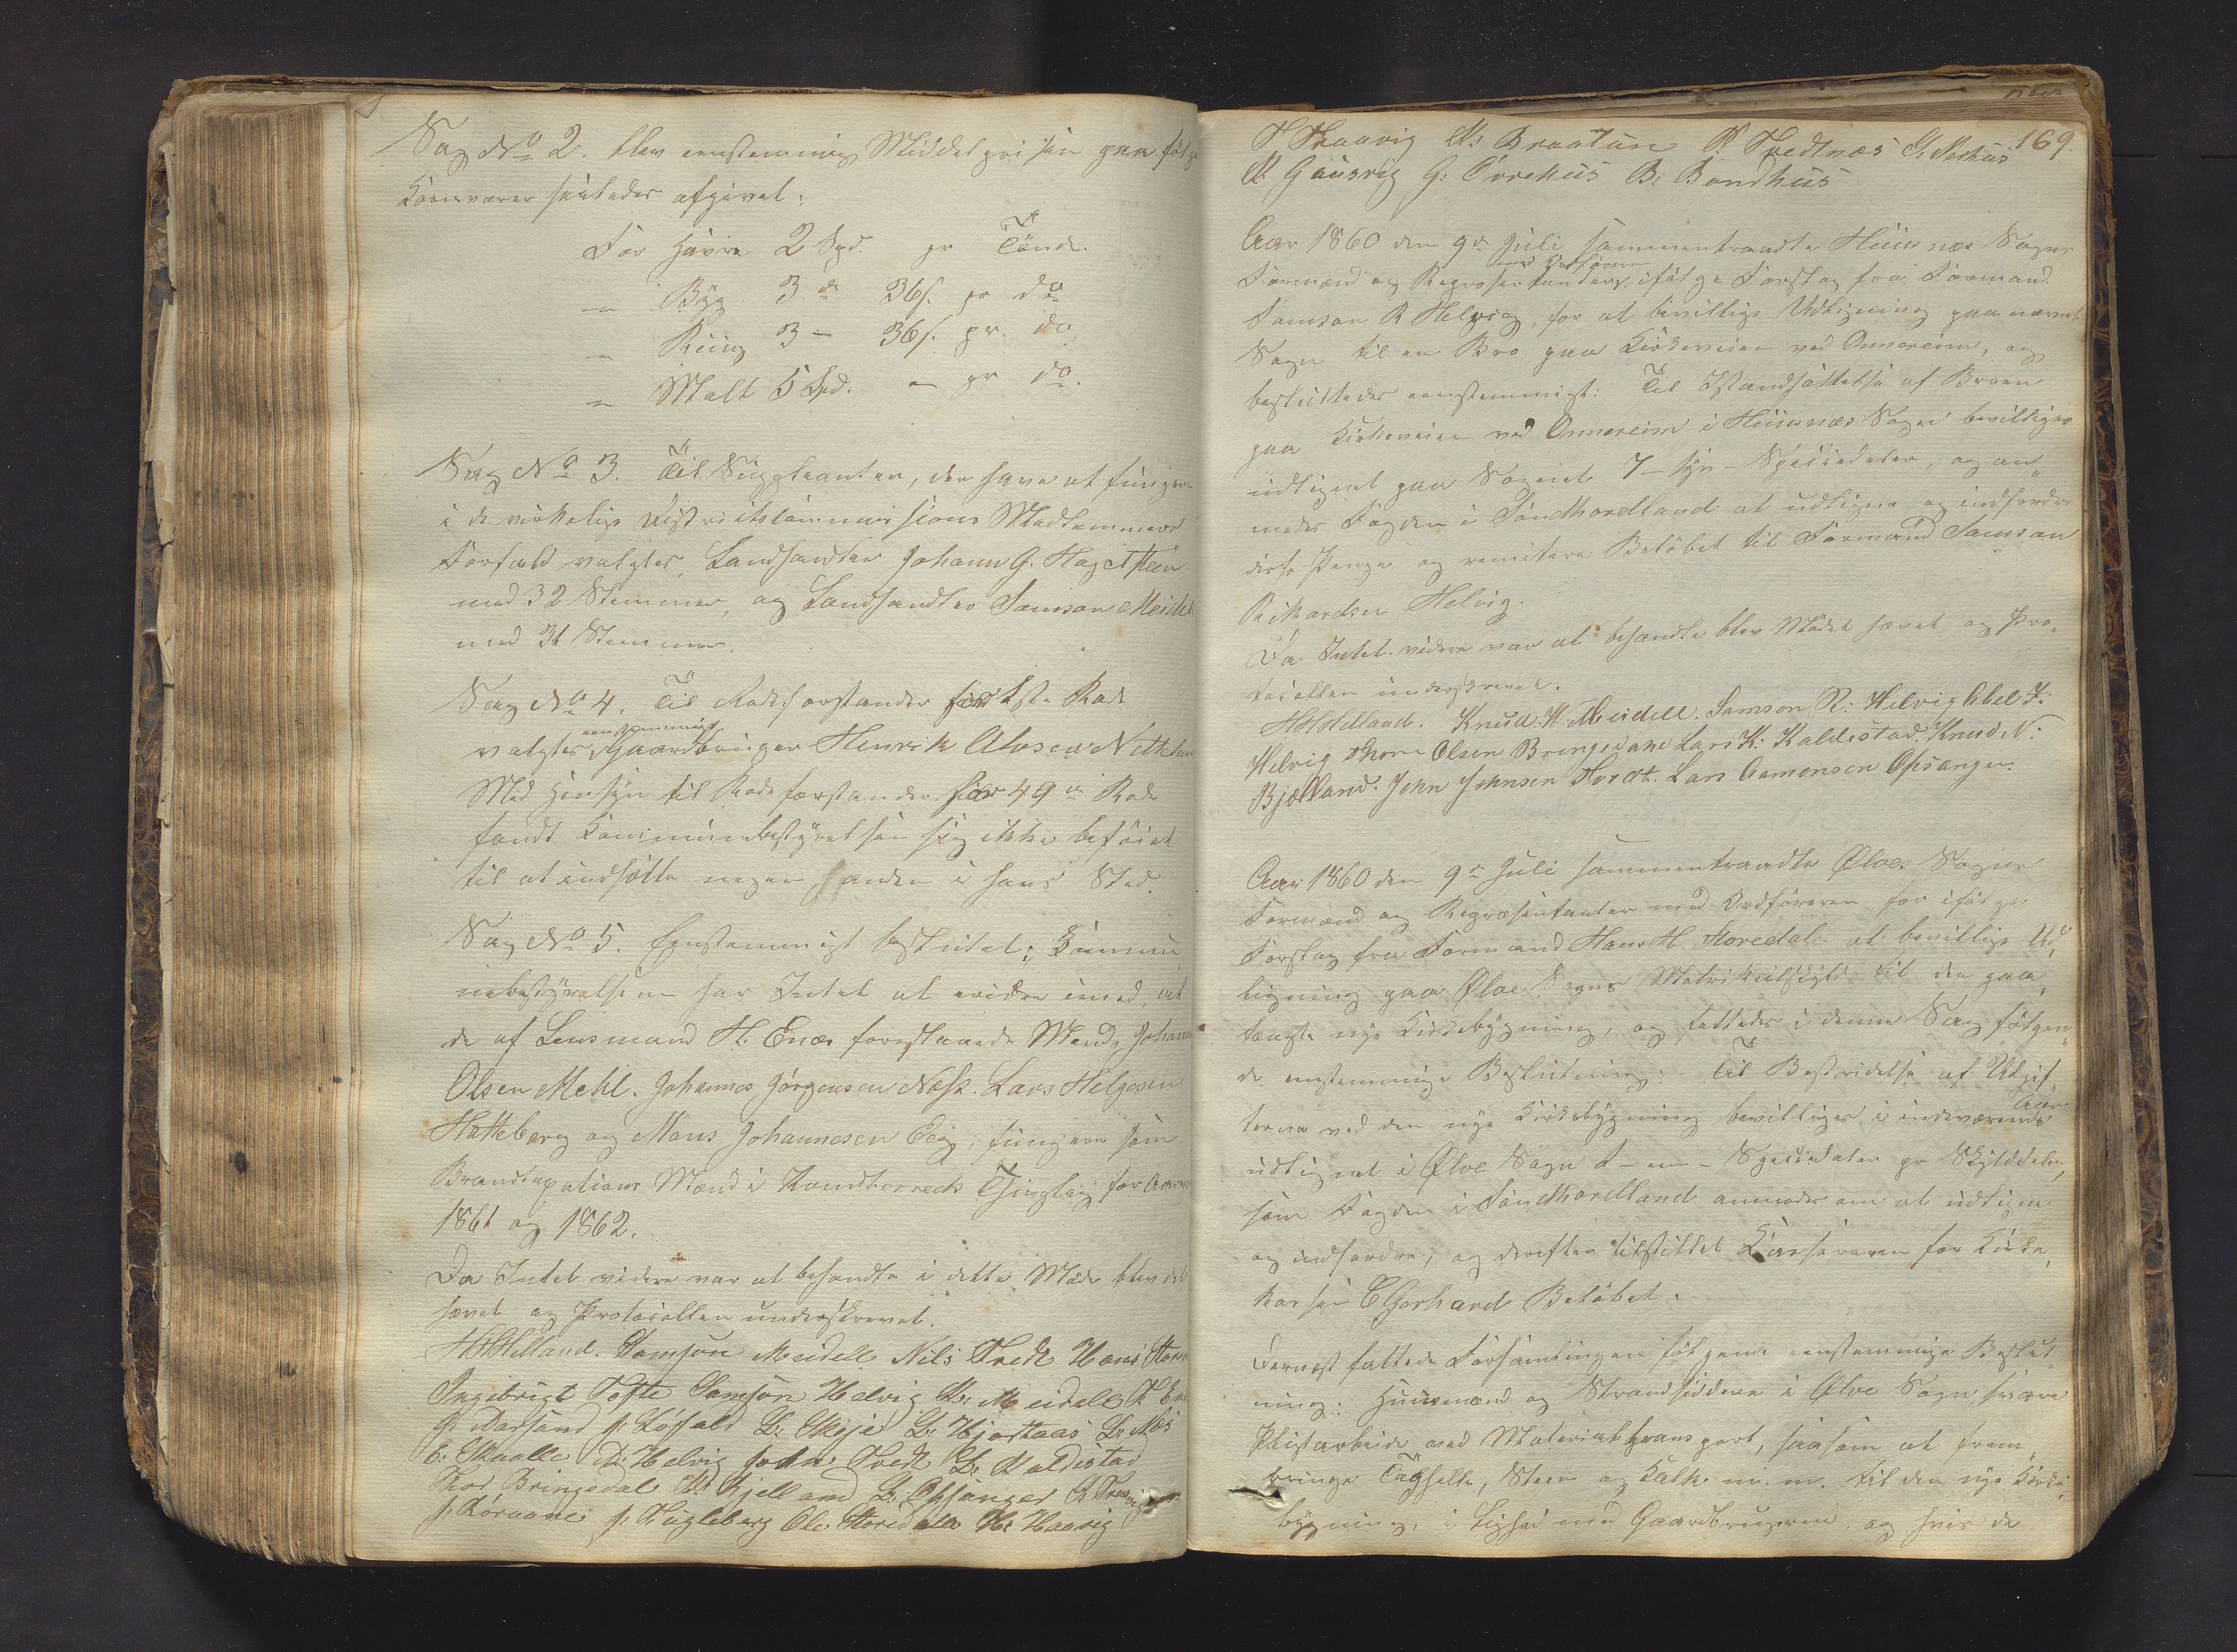 Sag No 2. blev eenstemmig Middelprisen paa følg
Kornvarer saaledes afgivet:
For Havre 2 Spd. pr Tønde.
" Byg 3 do 36 s. pr do
" Ruug 3 - 36 s. pr. do
" Malt 5 Spd. - pr do.
Sag No 3. Til Suppleanter, der have at fungere
i de virkelige Districtscommissions Medlemmers
Forfald valgtes Landhandler Johann G. Hagelsteen
med 32 Stemmer, og Landhandler Samson Meidell
med 31 Stemmer.
Sag No 4. Til Rodeforstander for 1ste Rode
valgtes eenstemmigt Gaardbruger Henrik Olosen Netteland
Med Hensyn til Rodeforstander for 49de Rode
fandt Communebestyrelsen sig ikke beføiet
til at indsætte nogen anden i hans Sted.
Sag No 5. Eenstemmigt besluttet: Commu„
nebestyrelsen har Intet at erindre imod, at
de af Lensmand H. Enæs foreslaaede Mænd, Johannes
Olsen Mehl. Johannes Jørgensen Næss. Lars Helgesen
Hatteberg og Mons Johannesen Eeg, fungere som
Brandtaxations Mænd i Kvindherreds Thinglag for Aarene
1861 og 1862.
Da Intet videre var at behandle i dette Møde blev det
hævet og Protocollen underskrevet.
HHHelland. Samson Meidell Nils Tvedt Hans Store
Ingebrigt Tofte Samson Helvig K: Meidell
L: Skeje L: Hjortaas L: Mos
E: Skaalle A: Helvig John Tvedt L: Kaldestad
Thor Bringedal K: Kjelland L: Opsanger
Ole Storedale H: Haavig
T Traavig K: Braatun P. Tvedtnæs 169.
K Gausvig G: Øvrehus B: Bondhus
Aar 1860 den 9de Juli sammentraadte Huusnæs Sogns
Formænd og Repræsentanter med Ordføreren, ifølge Forslag fra Formand
Samson R Helvig, for at bevillige Udligning paa nævnte
Sogn til en Bro paa Kirkeveien ved Onnareim, og
besluttedes eenstemmigt: Til Istandsættelse af Broen
paa Kirkeveien ved Onnareim i Huusnæs Sogn bevilliges
udlignet paa Sognet 7 - syv - Speciedaler, og an„
modes Fogden i Søndhordland at udligne og indfordre
disse Penge og remitere Beløbet til Formand Samson
Rikardsen Helvig.
Da Intet videre var at behandle blev Mødet hævet og Pro„
tocollen underskrevet.
HHHelland. Knud. K. Meidell. Samson R: Helvig Abel I:
Helvig Thore Olsen Bringedahl Lars K: Kaldestad. Knud N:
Bjælland. John Johnsen Tvedt. Lars Aamonsen Opsanger.
Aar 1860 den 9de Juli sammentraadte Ølve Sogns
Formænd og Repræsentanter med Ordføreren for ifølge
Forslag fra Formand Hans H Storedale at bevillige Ud„
ligning paa Ølve Sogns Matrikulskyld til den paa„
tænkte nye Kirkebygning, og fattedes i denne Sag følgen„
de eenstemmige Beslutning: Til Bestridelse af Udgif„
terne ved den nye Kirkebygning bevilliges i indeværende Aar
udlignet i Ølve Sogn 1 - een - Speciedaler pr Skylddaler,
som Fogden i Søndhordland anmodes om at udligne
og indfordre, og derefter tilstillet Kassereren for Kirke„
kassen C Gerhard Beløbet.
Dernæst fattede Forsamlingen følgende eenstemmige Beslut„
ning: Huusmænd og Strandsiddere i Ølve Sogn svare
Pligtarbeide ved Materialtransport, saasom at frem„
bringe Taghelle, Steen og Kalk m. m. til den nye Kirke„
bygning, i Lighed med Gaardbrugerne, og hvis de